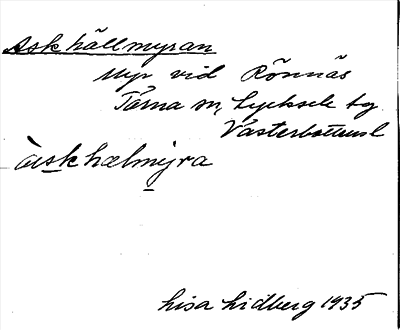 Askhällmyran
Myr vid Rönnäs
Tärna sn, Lycksele tg
Västerbottens l
àskhœlmyra
Lisa Lidberg 1935